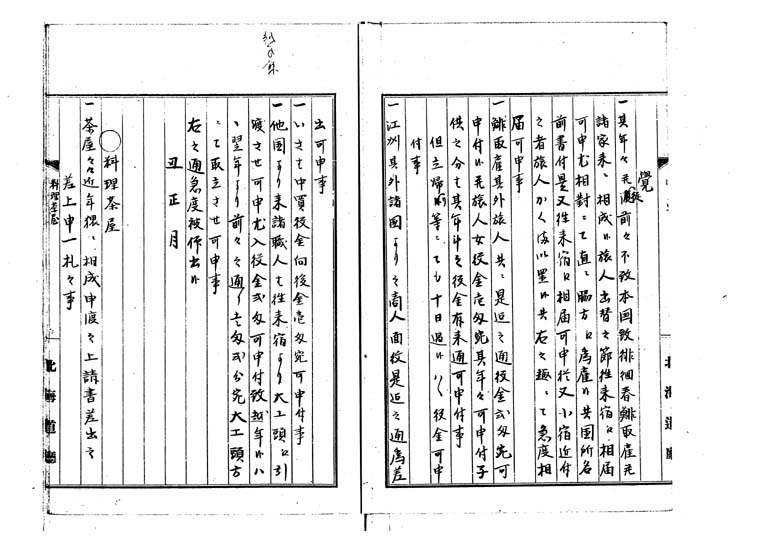 覚
一其年々元濃前々不致本国致徘徊春鯡取雇元
諸家来ニ相成候旅人出替之節往来宿江相届
可申尤相対ニて直ニ脇方江為雇候共国所名
前書付是又往来宿江相届可申於又小宿近付
之者旅人かくし差置候共右之趣ニて急度相
届可申事
一鯡取雇其外旅人共ニ是迄之通役金弐匁宛可
申付候尤旅人女役金壱匁宛其年々可申付子
供之分も其年斗之役金有来通可申付事
但立帰等ニても十日過候ハヽ役金可申
付事
一江州其外諸国よりの商人面役是迄之通為差
出可申事
一いさば中買役金向後金壱匁宛可申付事
一他国より来諸職人も往来宿より大工頭江引
渡させ可申尤入役金弐匁可申付致越年候ハ
ヽ翌年より前々之通り壱匁弐分宛大工頭方
ニて取立させ可申事
右之通急度被仰出候
丑正月
○料理茶屋
差上申一札之事
一茶屋々近年猥ニ相成申渡之上請書差出之
料理茶屋
北海道庁
北海道庁